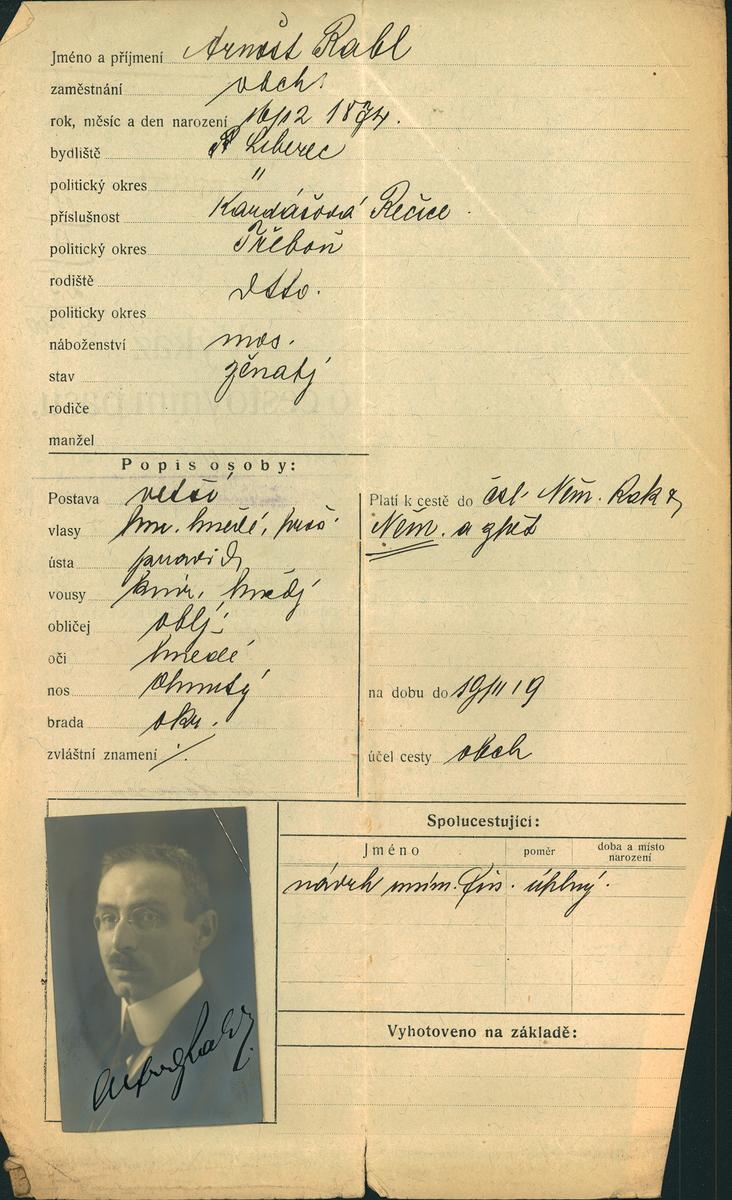 Jméno a příjmení Arnošt Rabl
zaměstnání obch.
rok, měsíc a den narození 16/12 1874.
bydliště Liberec
politický okres "
příslušnost Kardášová Řečice
politický okres Třeboň
rodiště dtto.
politicky okres
náboženství mos.
stav ženatý
rodiče
manžel
Popis osoby:
Postava větší
vlasy hnědé,
ústa pravid.
vousy knír, hnědý
obličej oblý
oči hnedé
nos
brada okr.
zvláštní znamení ./.
Platí k cestě do čsl. Něm. Rak a
Něm. a zpět
na dobu do 19/II 19
účel cesty obch
Spolucestující:
Jméno poměr doba a místo narození
návrh úhlný.
Vyhotoveno na základě: